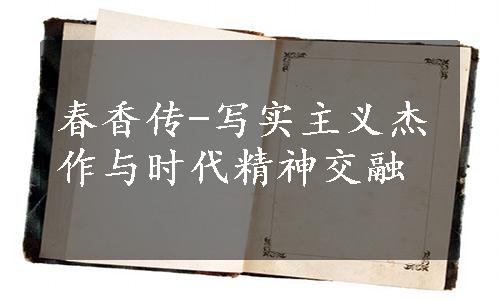 春香传-写实主义杰
作与时代精神交融